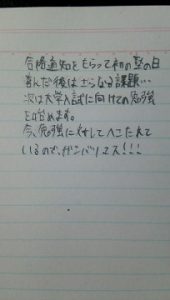 合格通知をもらって初の塾の日
喜んだ後はさらなる課題…
次は大学入試に向けての勉強
を始めます。
今、勉強に対してへこたれて
いるので、ガンバリマス!!!